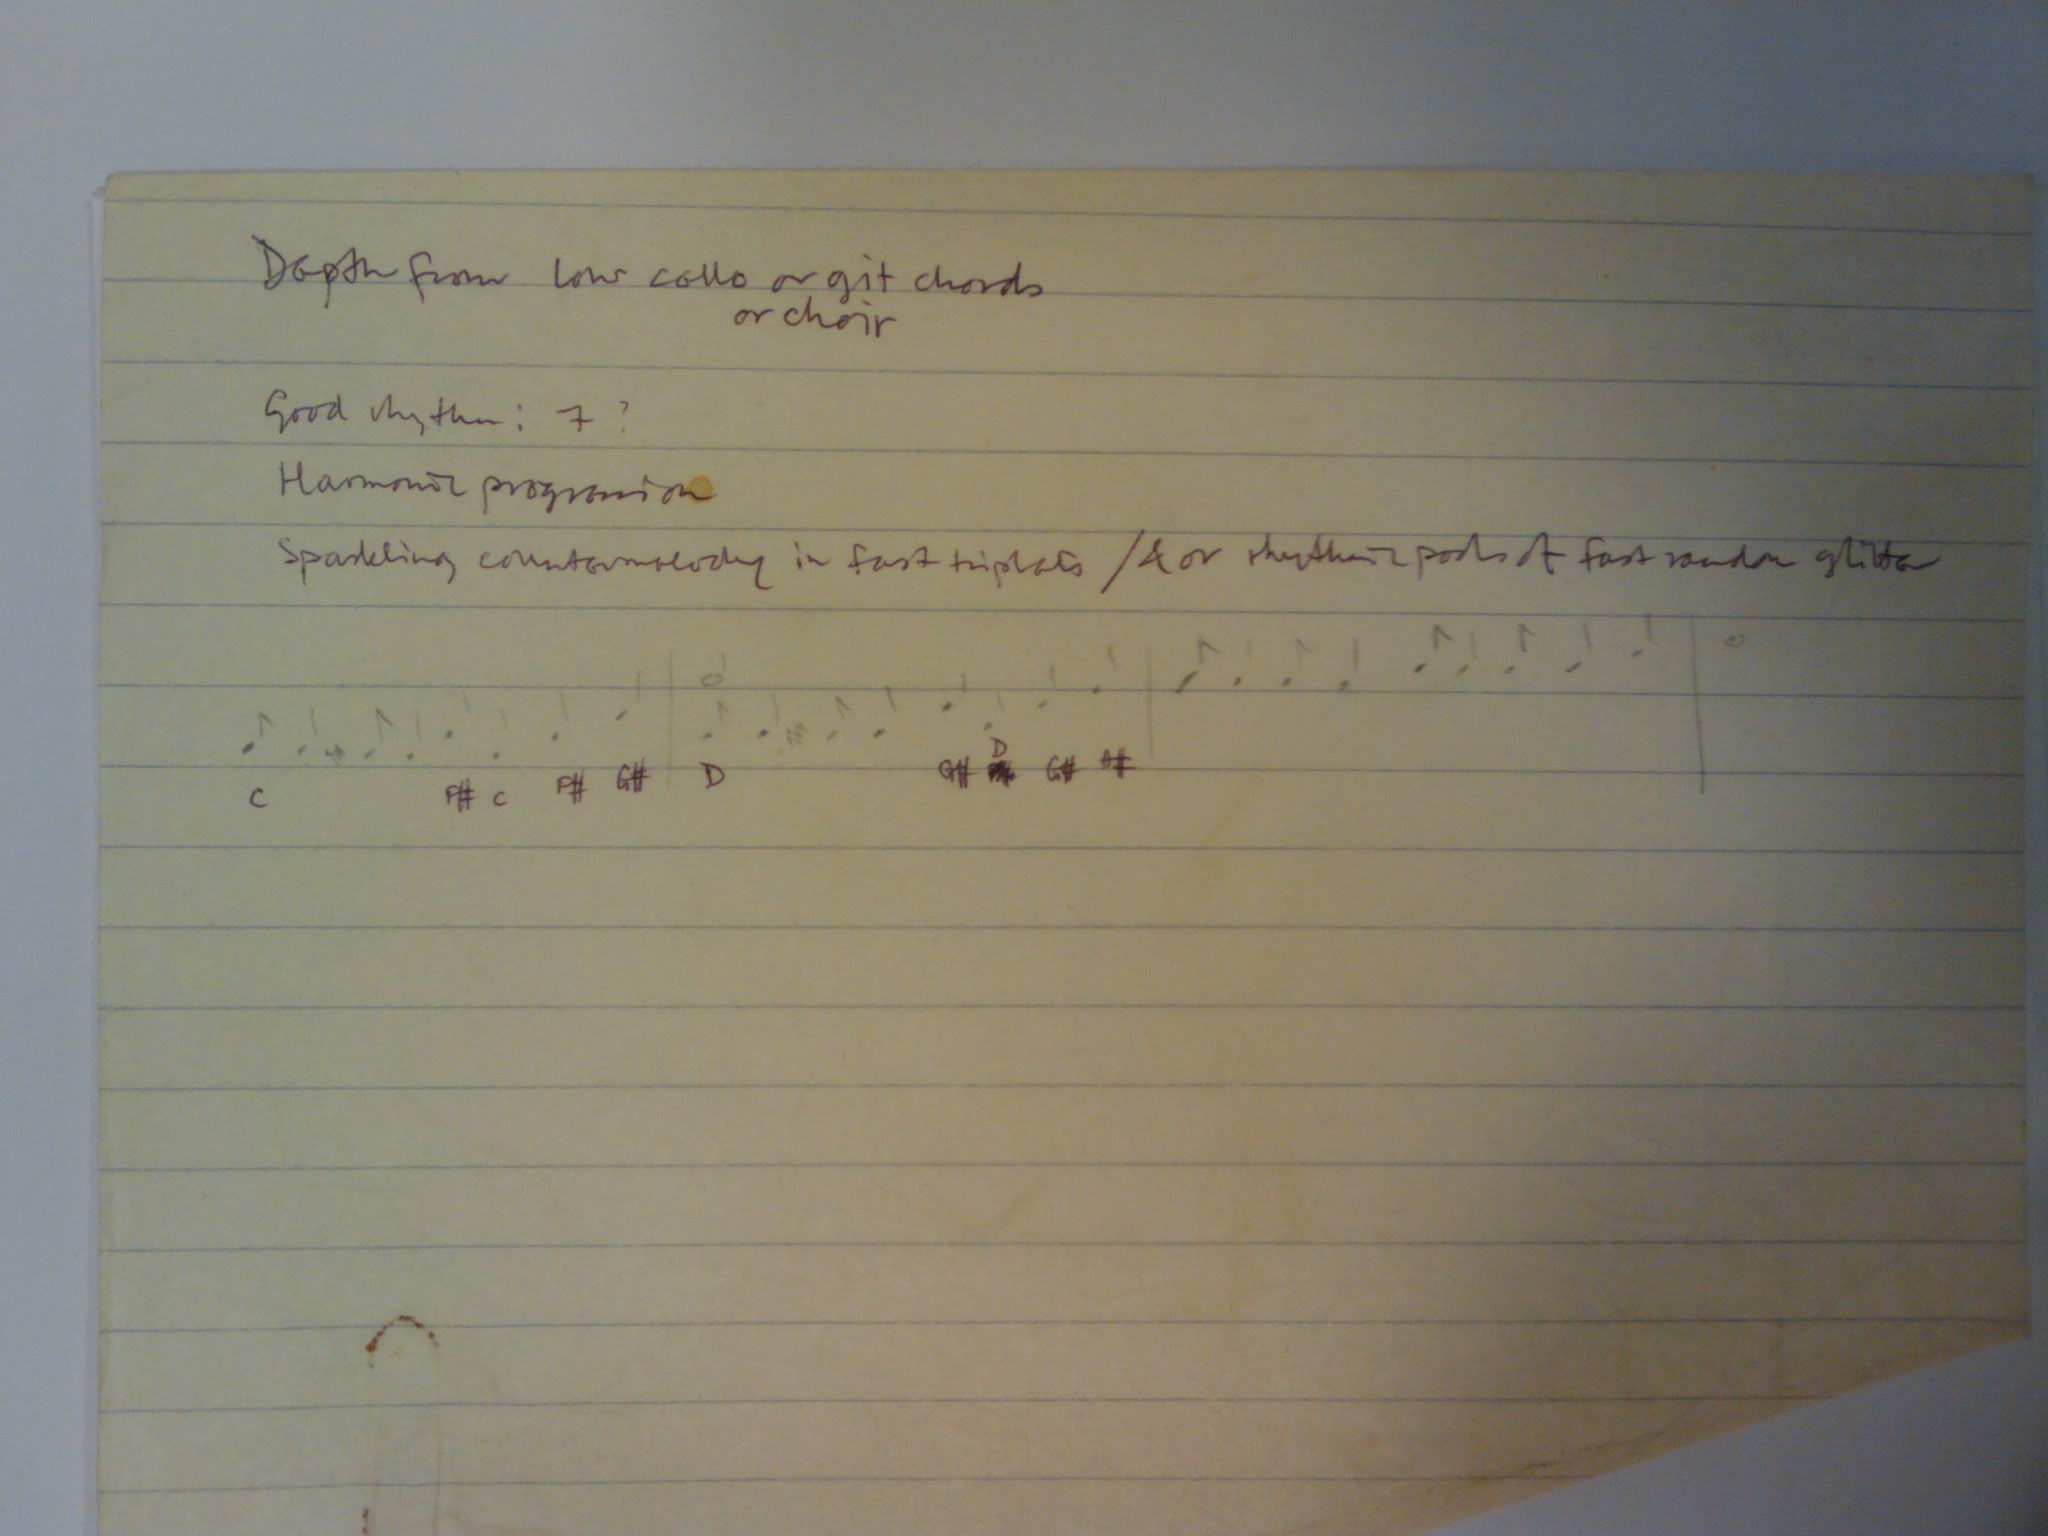 Depth from low cello or git chords
or choir
Good rhythm: 7?
Harmonic progression
Sparkling countermelody in fast triplets /& or rhythmic pools of fast random glitter
D
C F# C F# G# D G# G# A#